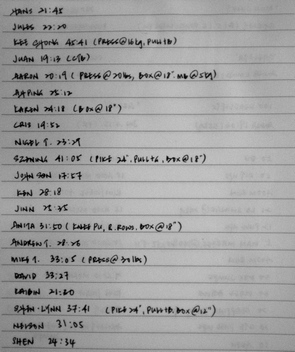 HANS 21:45
JULES 22:20
KEE CHONG 45:41 (PRESS@16kg, PULLTB)
JUAN 19:13 (CTB)
AARON 20:19 (PRESS@20lbs, BOX@18" MB@5kg)
25:12
KAREN 24:18 (BOX@18")
CRIS 19:52
NIGEL T. 23:29
41:05 (PIKE 24", PULLTB, BOX@18")
JOHNSON 17:57
KEN 28:18
JINN
ANITA 31:50 (KNEE PU, R.ROWS, BOX@18")
ANDREW T. 28:26
MIKE T. 33:05 (PRESS@30lbs)
DAVID 33:27
21:20
37:41 (PIKE 24", PULLTB, BOX@12")
NELSON 31:05
SHEN 24:34